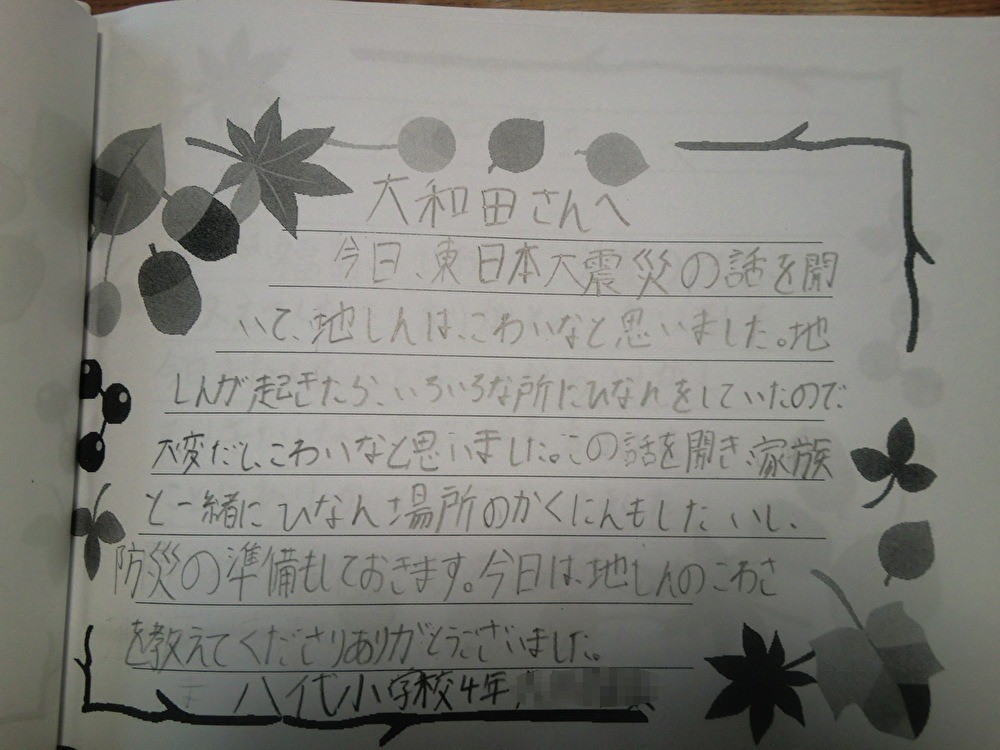 大和田さんへ
今日、東日本大震災の話を開
いて、地しんは、こわいなと思いました。地
しんが起きたら、いろいろな所にひなんをしていたので
大変だし、こわいなと思いました。この話を開き、家族
と一緒にひなん場所のかくにんもしたいし、
防災の準備もしておきます。今日は、地しんのこわさ
を教えてくださりありがとうございました。
八代小学校4年,